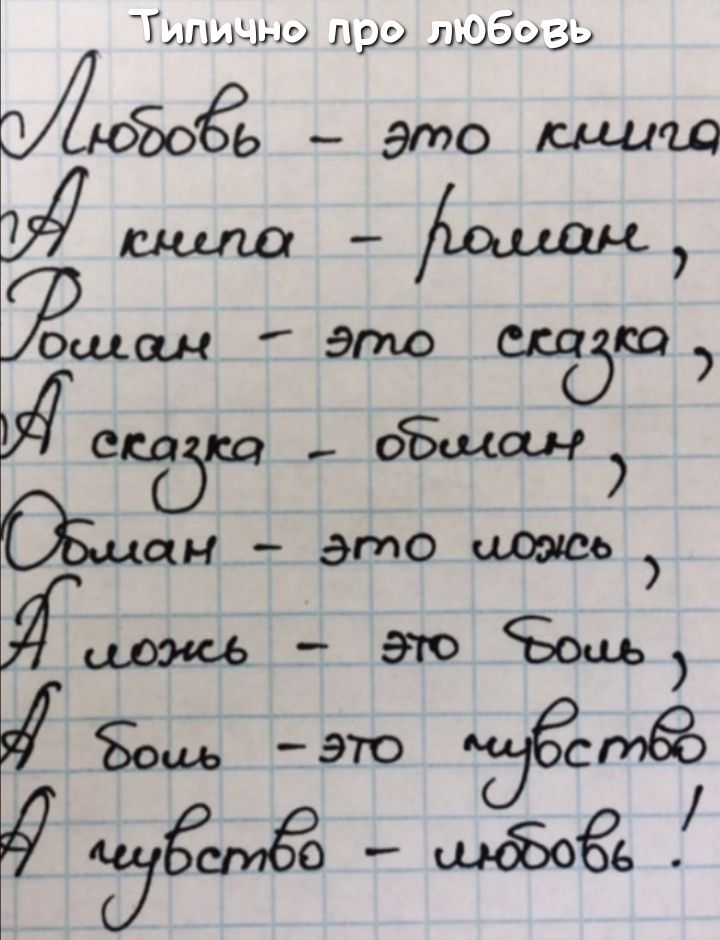 Типично про любовь
Любовь - это книга
А книга - роман,
Роман - это сказка,
А сказка - обман,
Обман - это ложь,
А ложь - это боль,
А боль - это чувство
А чувство - любовь!